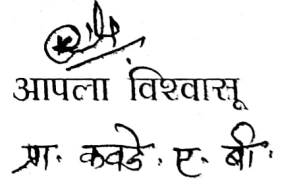 आपला विश्वासू
प्रा. कवडे. ए. बी.